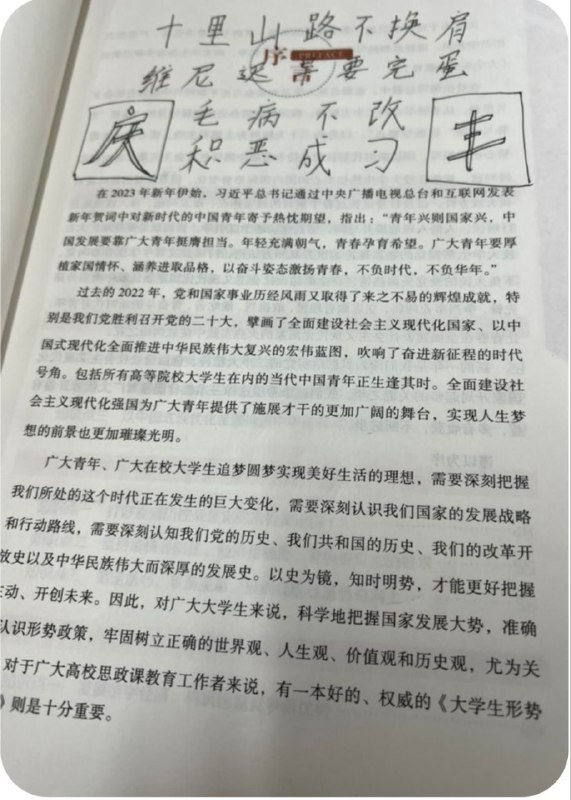 十里山路不换肩
序言
PREFACE
维尼迟早要完蛋
毛病不改
积恶成习
丰
在2023年新年伊始，习近平总书记通过中央广播电视总台和互联网发表
新年贺词中对新时代的中国青年寄予热忱期望，指出：“青年兴则国家兴，中
国发展要靠广大青年挺膺担当。年轻充满朝气，青春孕育希望。广大青年要厚
植家国情怀、涵养进取品格，以奋斗姿态激扬青春，不负时代，不负华年。”
过去的2022年，党和国家事业历经风雨又取得了来之不易的辉煌成就，特
别是我们党胜利召开党的二十大，擘画了全面建设社会主义现代化国家、以中
国式现代化全面推进中华民族伟大复兴的宏伟蓝图，吹响了奋进新征程的时代
号角。包括所有高等院校大学生在内的当代中国青年正生逢其时。全面建设社
会主义现代化强国为广大青年提供了施展才干的更加广阔的舞台，实现人生梦
想的前景也更加璀璨光明。
广大青年、广大在校大学生追梦圆梦实现美好生活的理想，需要深刻把握
我们所处的这个时代正在发生的巨大变化，需要深刻认识我们国家的发展战略
和行动路线，需要深刻认知我们党的历史、我们共和国的历史、我们的改革开
放史以及中华民族伟大而深厚的发展史。以史为镜，知时明势，才能更好把握
动、开创未来。因此，对广大大学生来说，科学地把握国家发展大势，准确
认识形势政策，牢固树立正确的世界观、人生观、价值观和历史观，尤为关
对于广大高校思政课教育工作者来说，有一本好的、权威的《大学生形势
》则是十分重要。